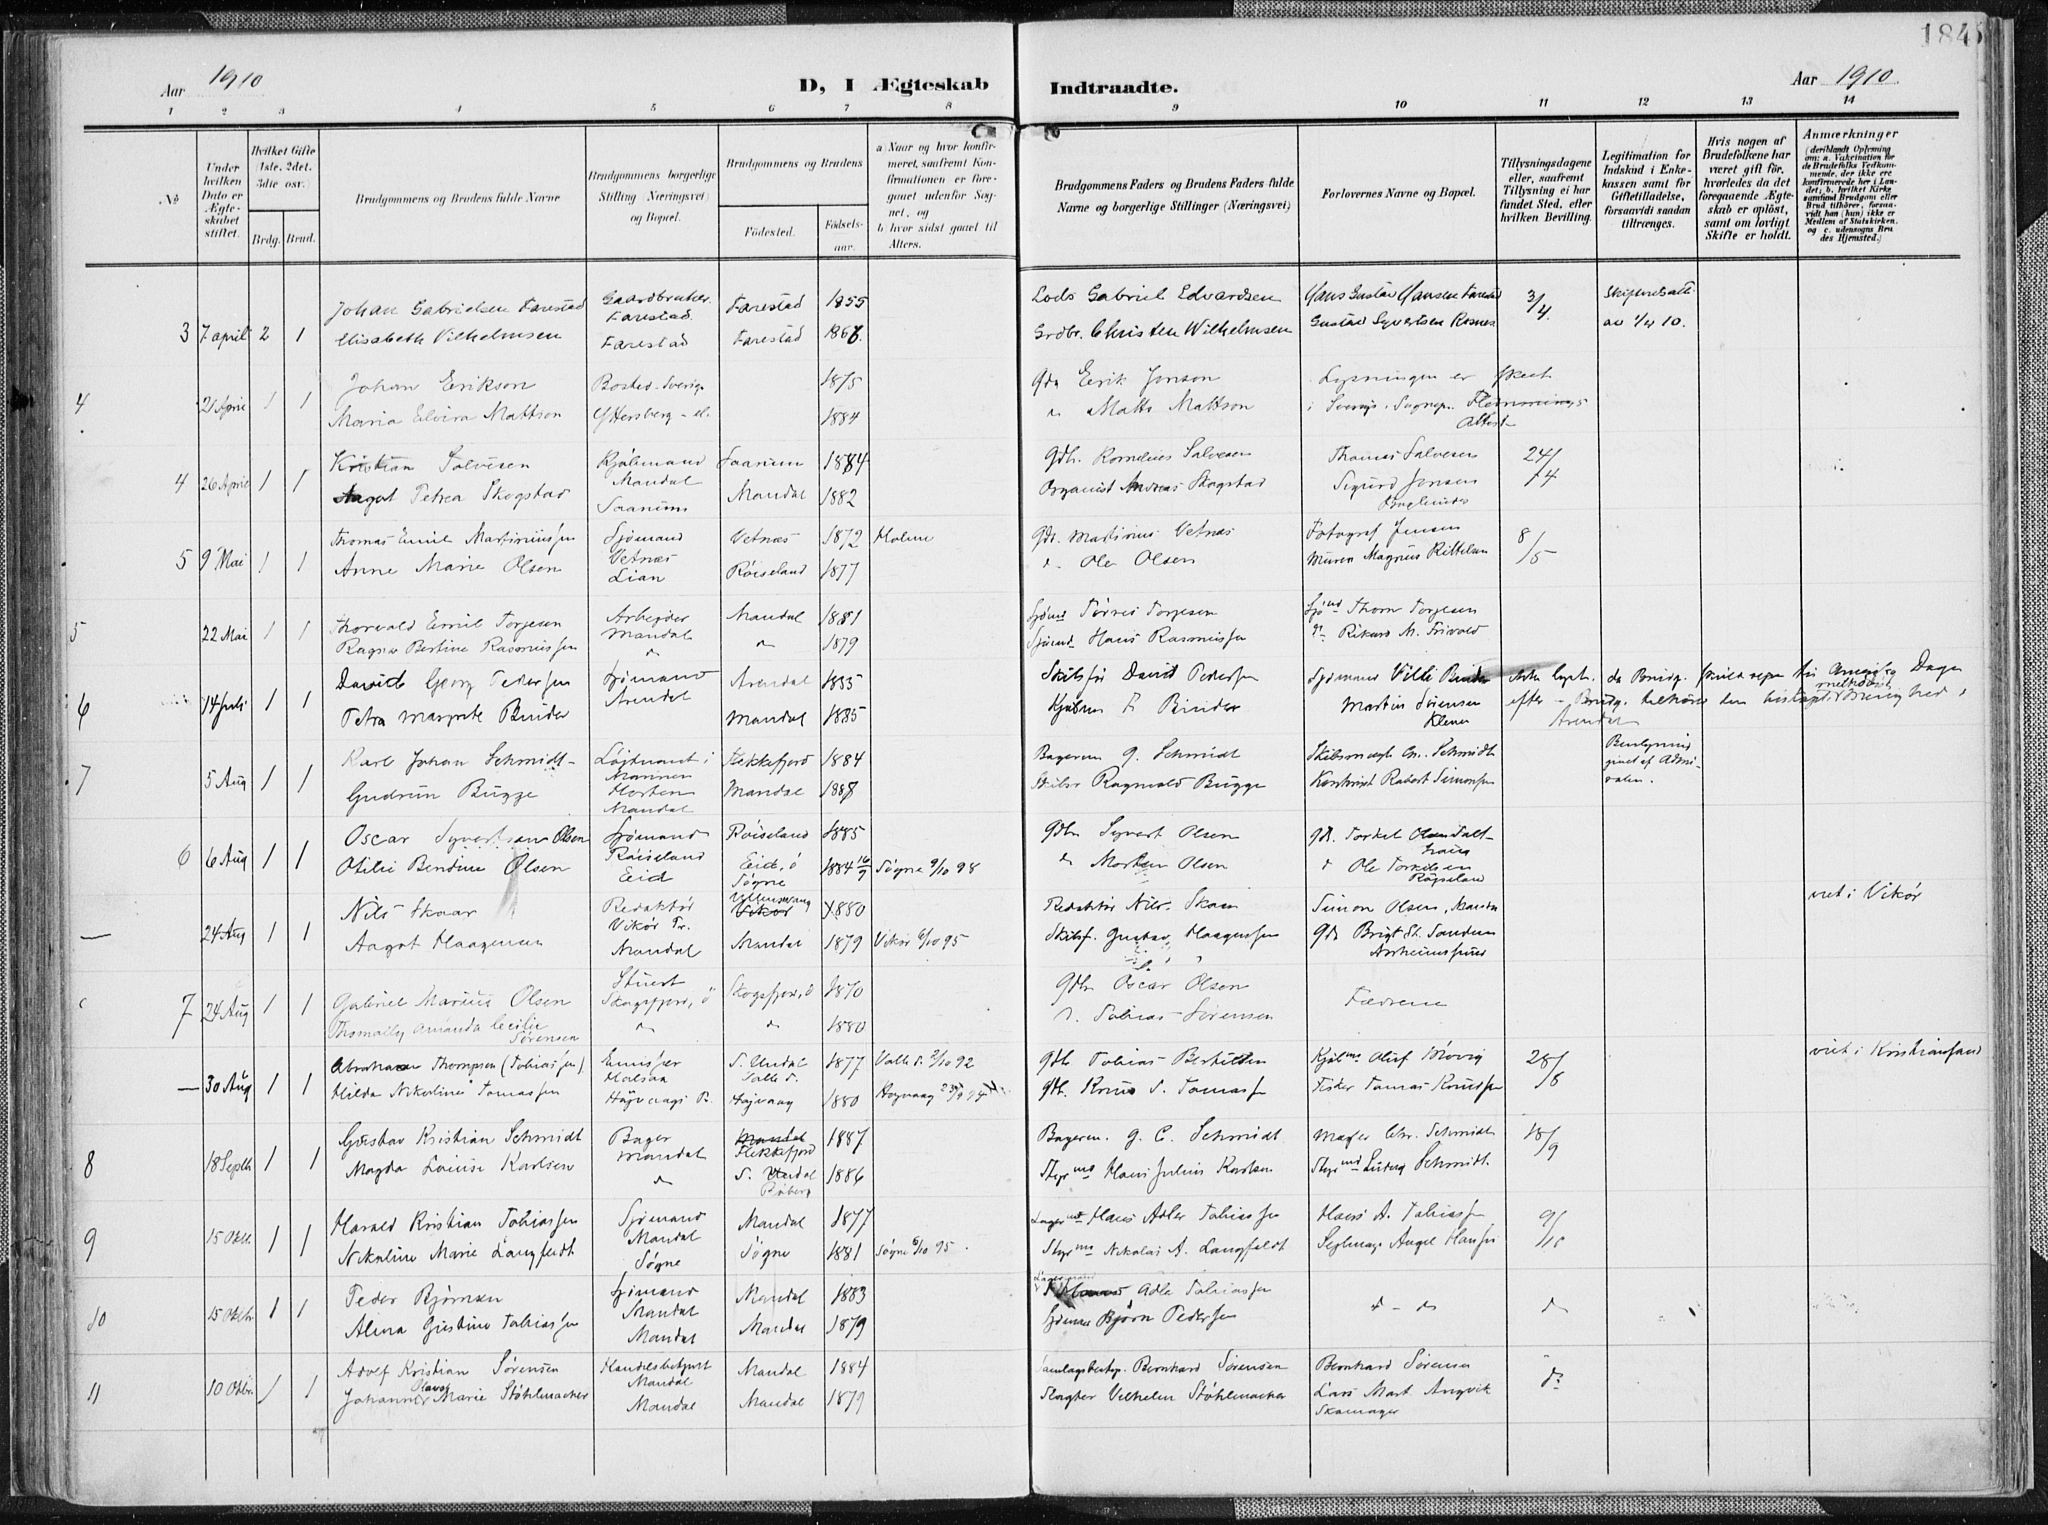 184
Aar 1910
D, I Ægteskab Indtraadte.
Aar 1910
1 2 3 4 5 6 7 8 9 10 11 12 13 14
No
Under hvilken Dato er Ægteskabet stiftet.
Hvilket Gifte (1ste, 2det, 3die osr.)
Brdg. Brud.
Brudgommens og Brudens fulde Navne
Brudgommens borgerlige Stilling (Næringsvei) og Bopæl.
Brudgommens og Brudens
Fødested. Fødselsaar.
a) Naar og hvor konfirmeret, saafremt Konfirmationen er foregaaet udenfor Sognet, og
b) hvor sidst gaaet til Alters.
Brudgommens Faders og Brudens Faders fulde Navne og borgerlige Stillinger (Næringsvei)
Forlovernes Navne og Bopæl.
Tillysningsdagene eller, saafremt Tillysning ei har fundet Sted, efter hvilken Bevilling.
Legitimation for Indskud i Enkekassen samt for Giftetilladelse, forsaavidt saadan tiltrænges.
Hvis nogen af Brudefolkene har været gift før, hvorledes da det foregaaende Ægteskab er opløst, samt om lovligt Skifte er holdt.
Anmærkninger
(deriblandt Oplysning om: a. Vakcination for de Brudefolks Vedkommende, der ikke ere konfirmerede her i Landet; b. hvilket Kirkesamfund Brudgom eller Brud tilhører, forsaavidt han (hun) ikke er Medlem af Statskirken, og c. udensogns Brudes Hjemsted.)
3 7 april 2 1 Johan Gabrielsen Farestad Gaardbruker Farestad Farestad 1855 Lods Gabriel Edvardsen Hans Gustav Hansen Farestad 3/4
Elisabeth Vilhelmsen Farestad Farestad Grdbr. Christen Wilhelmsen Gustav Syvertsen Rosnes
4 21 April 1 1 Johan Erikson Sverige 1875 Gdb Eerik Jonson Lysningen er skeet
Maria Elvira Mattson 1884 " Matts Mattson i Sverig. Attest
4 26 April 1 1 Kristian Salvesen Mandal Saanum 1884 Gdb. Kornelius Salvesen Thomas Salvesen 24/4
Aagot Petrea Skogstad Saanum Mandal 1882 Organist Andreas Skogstad Sigurd Jensen
5 9 Mai 1 1 Thomas Emil Martiniussen Sjømand Vetnæs Vetnæs 1872 Holum Gdb. Martinius Vetnæs Fotograf Jensen 8/5
Anne Marie Olsen Lian Röiseland 1877 " Ole Olsen Murer Magnus Kittelsen
5 22 Mai 1 1 Thorvald Emil Torjesen Arbeider Mandal Mandal 1881 Sjømd Tørres Torjesen Sjømd Thorn Torjesen
Ragna Bertine Rasmussen " " 1879 Sjømd Hans Rasmussen Rikard M. Trivold
6 14 Juli 1 1 David Georg Pedersen Sjømand Arendal Arendal Skibsfø David Pedersen Sjømand Villi Binder
Petra Margrete Binder Mandal 1885 Kjøbm F Binder Martin Sørensen Kleven Arendal
7 5 Aug 1 1 Karl Johan Schmidt Løjtnant i Marinen Horten Flekkefjord 1884 Bageren G. Schmidt Skibsmægl Chr. Schmidt
Gudrun Bugge Mandal Mandal Skibsr Ragnvald Bugge Robert Simonsen
6 6 Aug 1 1 Oscar Syvertsen Olsen Sjømand Röiseland Röiseland 1885 Gdbr Syvert Olsen Gdb. Torkel Olsen
Otilie Bendine Olsen Eid Eid, ö Søgne 1884 16/9 Søgne 9/10 98 " Morten Olsen " Ole Torkelsen Røiseland
— 24 Aug 1 1 Nils Skaar Redaktør Vikør Pr. Ullensvang Vikør 1880 Redaktør Nils Skaar Simon Olsen, Mandal viet i Vikør
Aagot Haagensen Mandal Mandal 1879 Vikør 6/10 95 Skibsf. Gustav Haagensen
7 24 Aug 1 1 Gabriel Marius Olsen Skogsfjord, ö Skogsfjord, ö 1870 Gdbr Oscar Olsen Fædrene
Thomally Amanda Cecilie Sørensen " " 1880 " Tobias Sørensen
— 30 Aug 1 1 Abraham Thompsen (Tobiassen) S. Undal Valle s. 1877 Valle s. 2/10 92 Gdb. Tobias Bertilsen Oluf Brovig 28/8 viet i Kristianssand
Hilda Nikoline Tomassen Høivaag 1880 Gdb. Knud S. Tomassen Fisker Tomas Knudsen
8 18 Septb 1 1 Gustav Kristian Schmidt Bager Mandal Mandal Flekkefjord 1887 Bageren G. C. Schmidt Mægler Chr. Schmidt 18/9
Magda Louise Karlsen " S. Undal 1886 Styrmd Hans Julius Karlsen Styrmd Ludvig Schmidt.
9 15 Oktb. 1 1 Harald Kristian Tobiassen Sjømand Mandal Mandal 1877 Lagermd Hans Adler Tobiassen Hans A. Tobiassen 9/10
Nikoline Marie Langfeldt Søgne Søgne 1881 Søgne 6/10 95. Styrmd Nikolai A. Langfeldt Seglmager Aagel Hansen
10 15 Oktbr 1 1 Peder Bjørnsen Sjømand Mandal Mandal 1883 Adler Tobiassen " - " "
Alma Gustine Tobiassen Mandal Mandal 1879 Sjømand Bjørn Pedersen
11 10 Oktbr. 1 1 Adolf Kristian Sørensen Handelsbetjent Mandal Mandal 1884 Samlagsbestyr. Bernhard Sørensen Bernhard Sørensen do
Johanne Olava Marie Støhlmacher Mandal Mandal 1879 Slagter Vilhelm Støhlmacher Lars Mart. Angvik Skomager